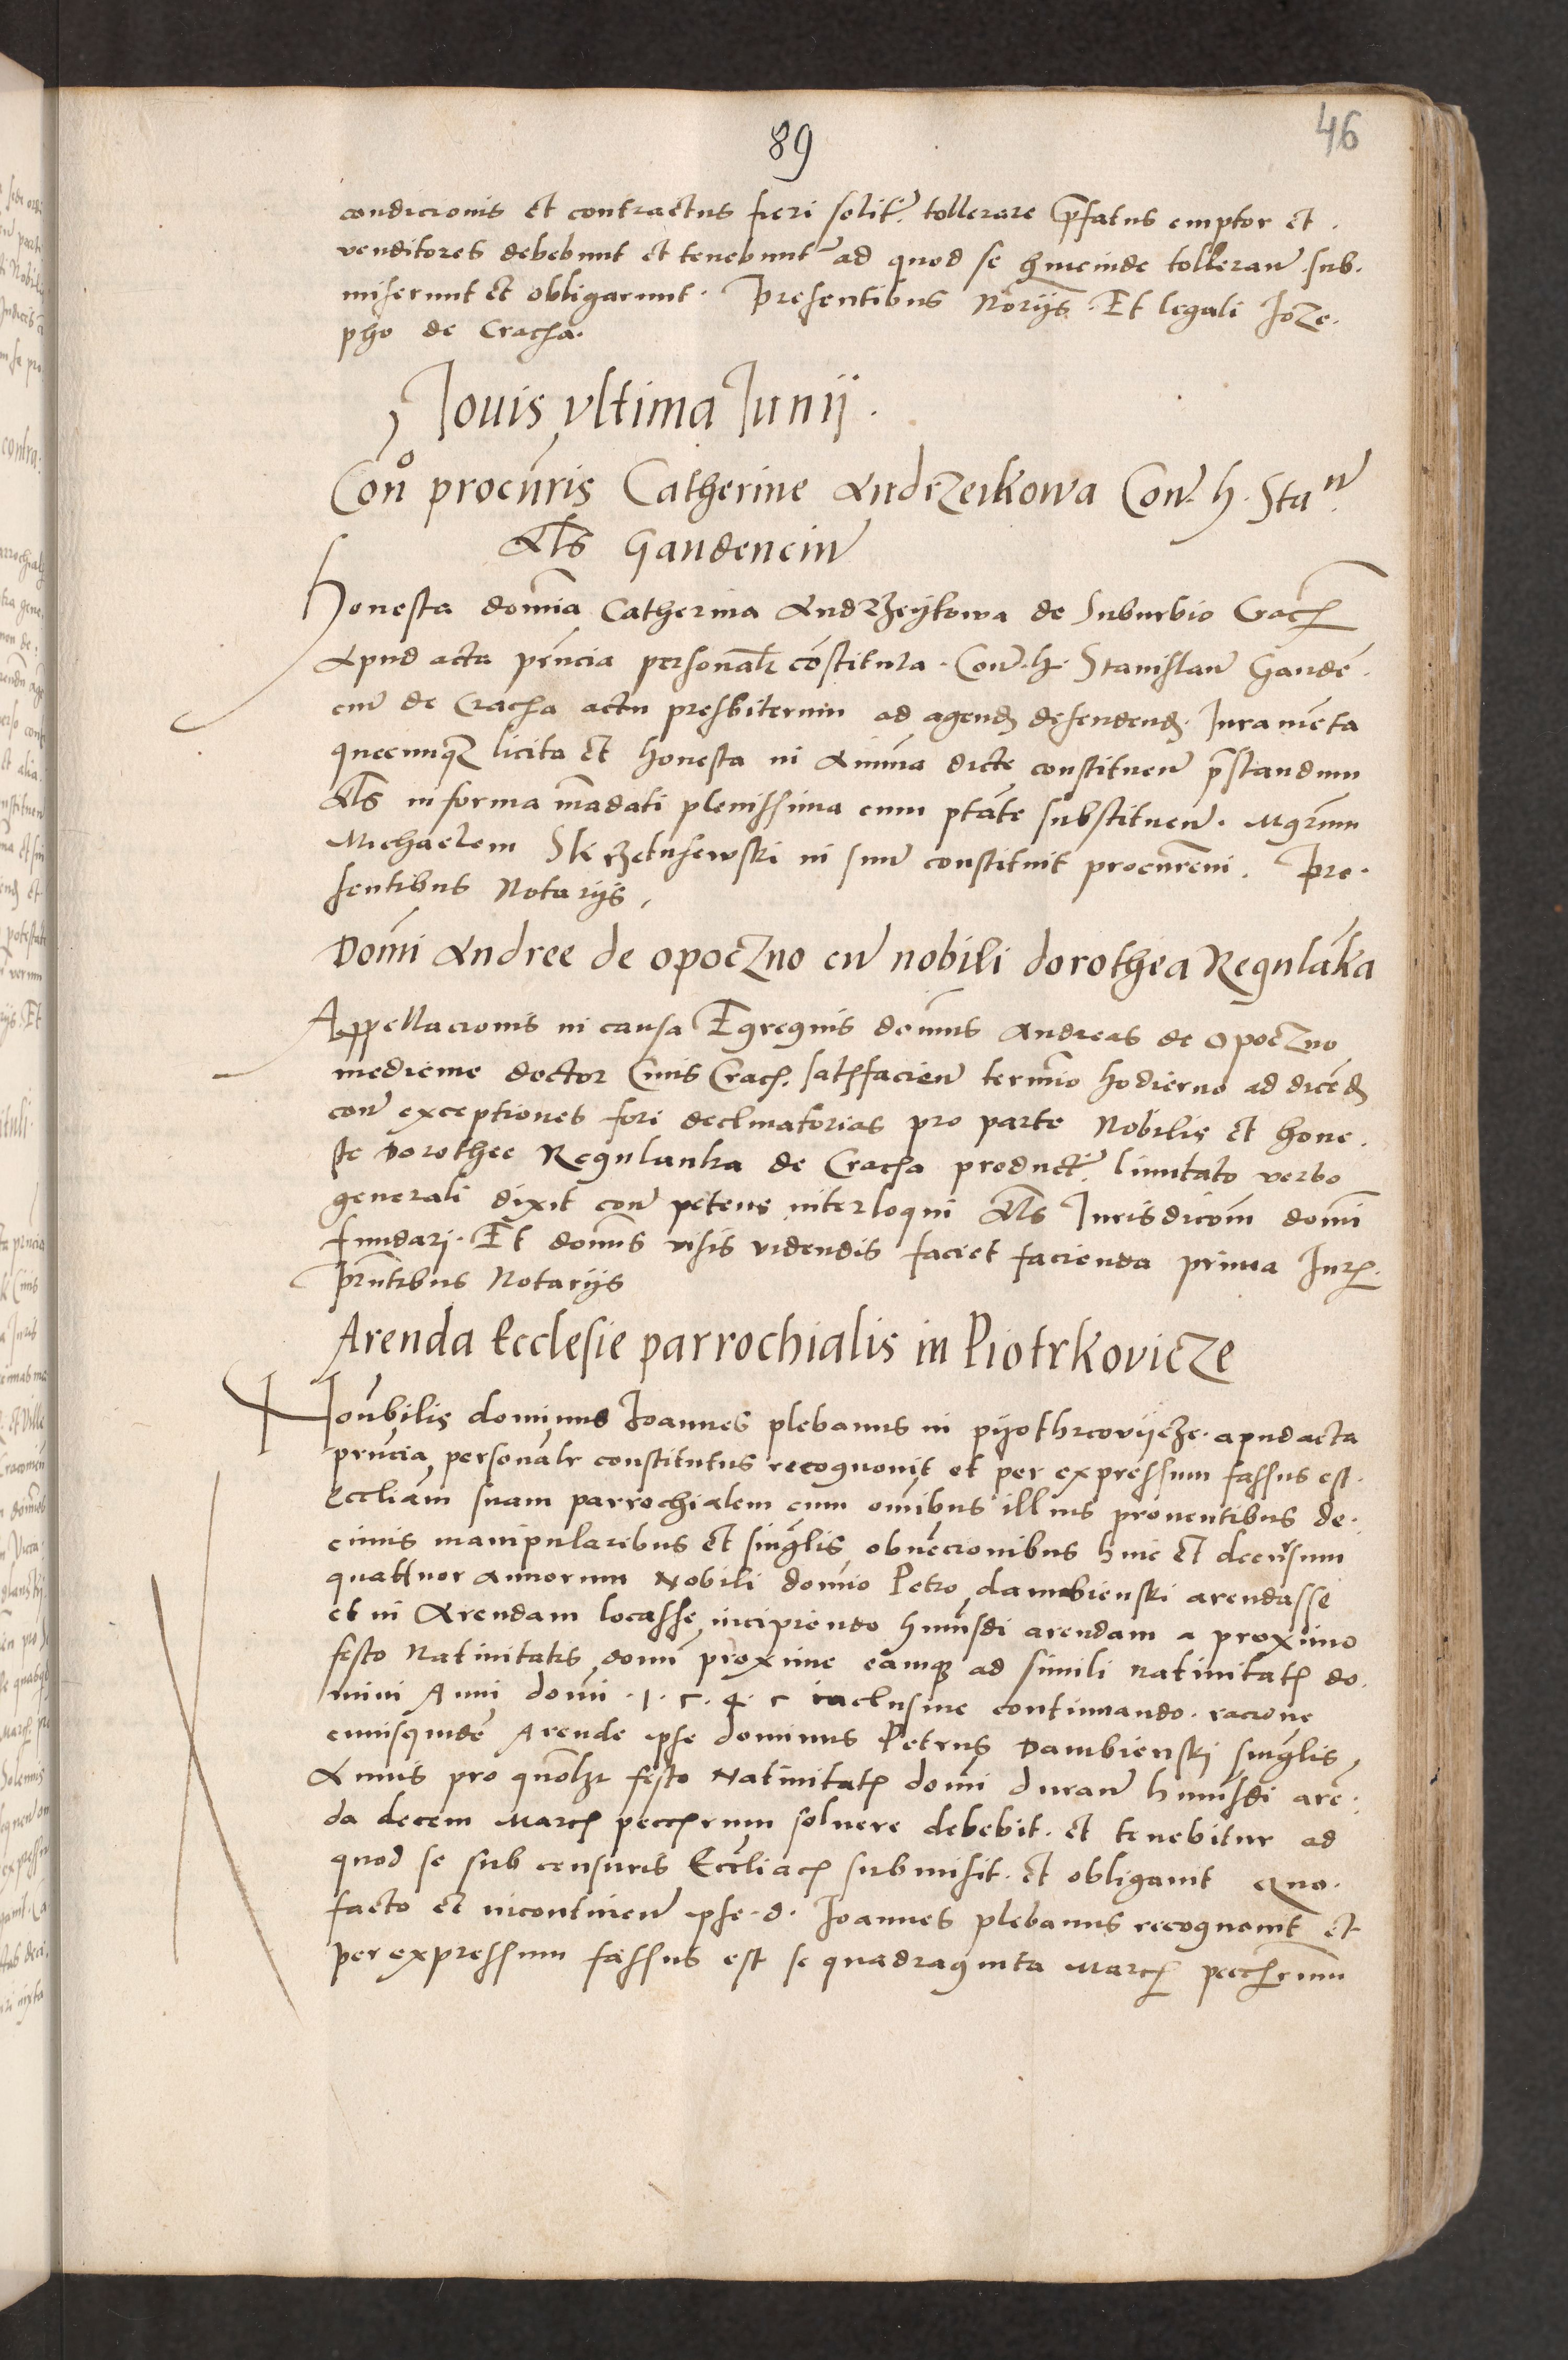 89
46
condicionis et contractus fieri solit. tollerare prefatus emptor et
venditores debebunt et tenebunt ad quod se hincinde tolleran. sub.
miserunt et obligarunt. Presentibus Noriis. Et legali Joze.
pho de Cracha.
Jouis vltima Junij.
Con procuris Catherine Andrzeikowa Con. h. Stan
Als Gaudencin
Honesta domina Catherina Andrzeykowa de Suburbio Crac
Apud acta pncia personalr constituta. Con. h. Stanislaum Gauden.
cium de Cracha actu presbiterum ad agend defendend. Juramenta
quecumque licita et honesta in Anima dicte constituen prestandum
Als in forma mandati plenissima cum ptate substituen. Mgrum
Michaelem Skrzetusewski in suum constituit procurem. Pre.
sentibus Notarijs,
Domi Andree de opoczno cum nobili dorothea Regulanka
Appellacionis in causa Egregius dominus Andreas de Opoczno
medicine doctor Ciuis Crach. satisfacien termino hodierno ad dicend
con exceptiones fori declinatorias pro parte Nobilis et hone.
ste Dorothee Regulanka de Cracha product. limitato verbo
generali dixit con petens interloqui Als Jurisdicom domi
fundari. Et domnus visis videndis faciet facienda prima Jur.
Prntibus Notarijs
Arenda Ecclesie parrochialis in Piotrkovicze
Honbilis dominus Joannes plebanus in pyothrcovycze. apud acta
prncia personalr constitutus recognouit et per expressum fassus est.
Eccliam suam parrochialem cum omibus illius prouentibus de.
cimis manipularibus et singlis obuencionibus hinc et decursum
quattuor Annorum Nobili domino Petro dambienski arendasse
et in Arendam locasse incipiendo huiusdi arendam a proximo
festo Natiuitatis domi proxime eamque ad simili natiuitatis do.
mini Anni domi. 1. 5. 4. 5 inclusiue continuando. racione
cuiusquidem Arende ipse dominus Petrus Dambienski singlis
Annis pro quolzt festo Natiuitatis domi duran huiusdi aren.
da decem Marcas peccrum soluere debebit. et tenebitur ad
quod se sub censuris Eccliac submisit. et obligauit Quo.
facto et incontinen ipse. d. Joannes plebanus recognouit et
per expressum fassus est se quadraginta Marcas pecchrum